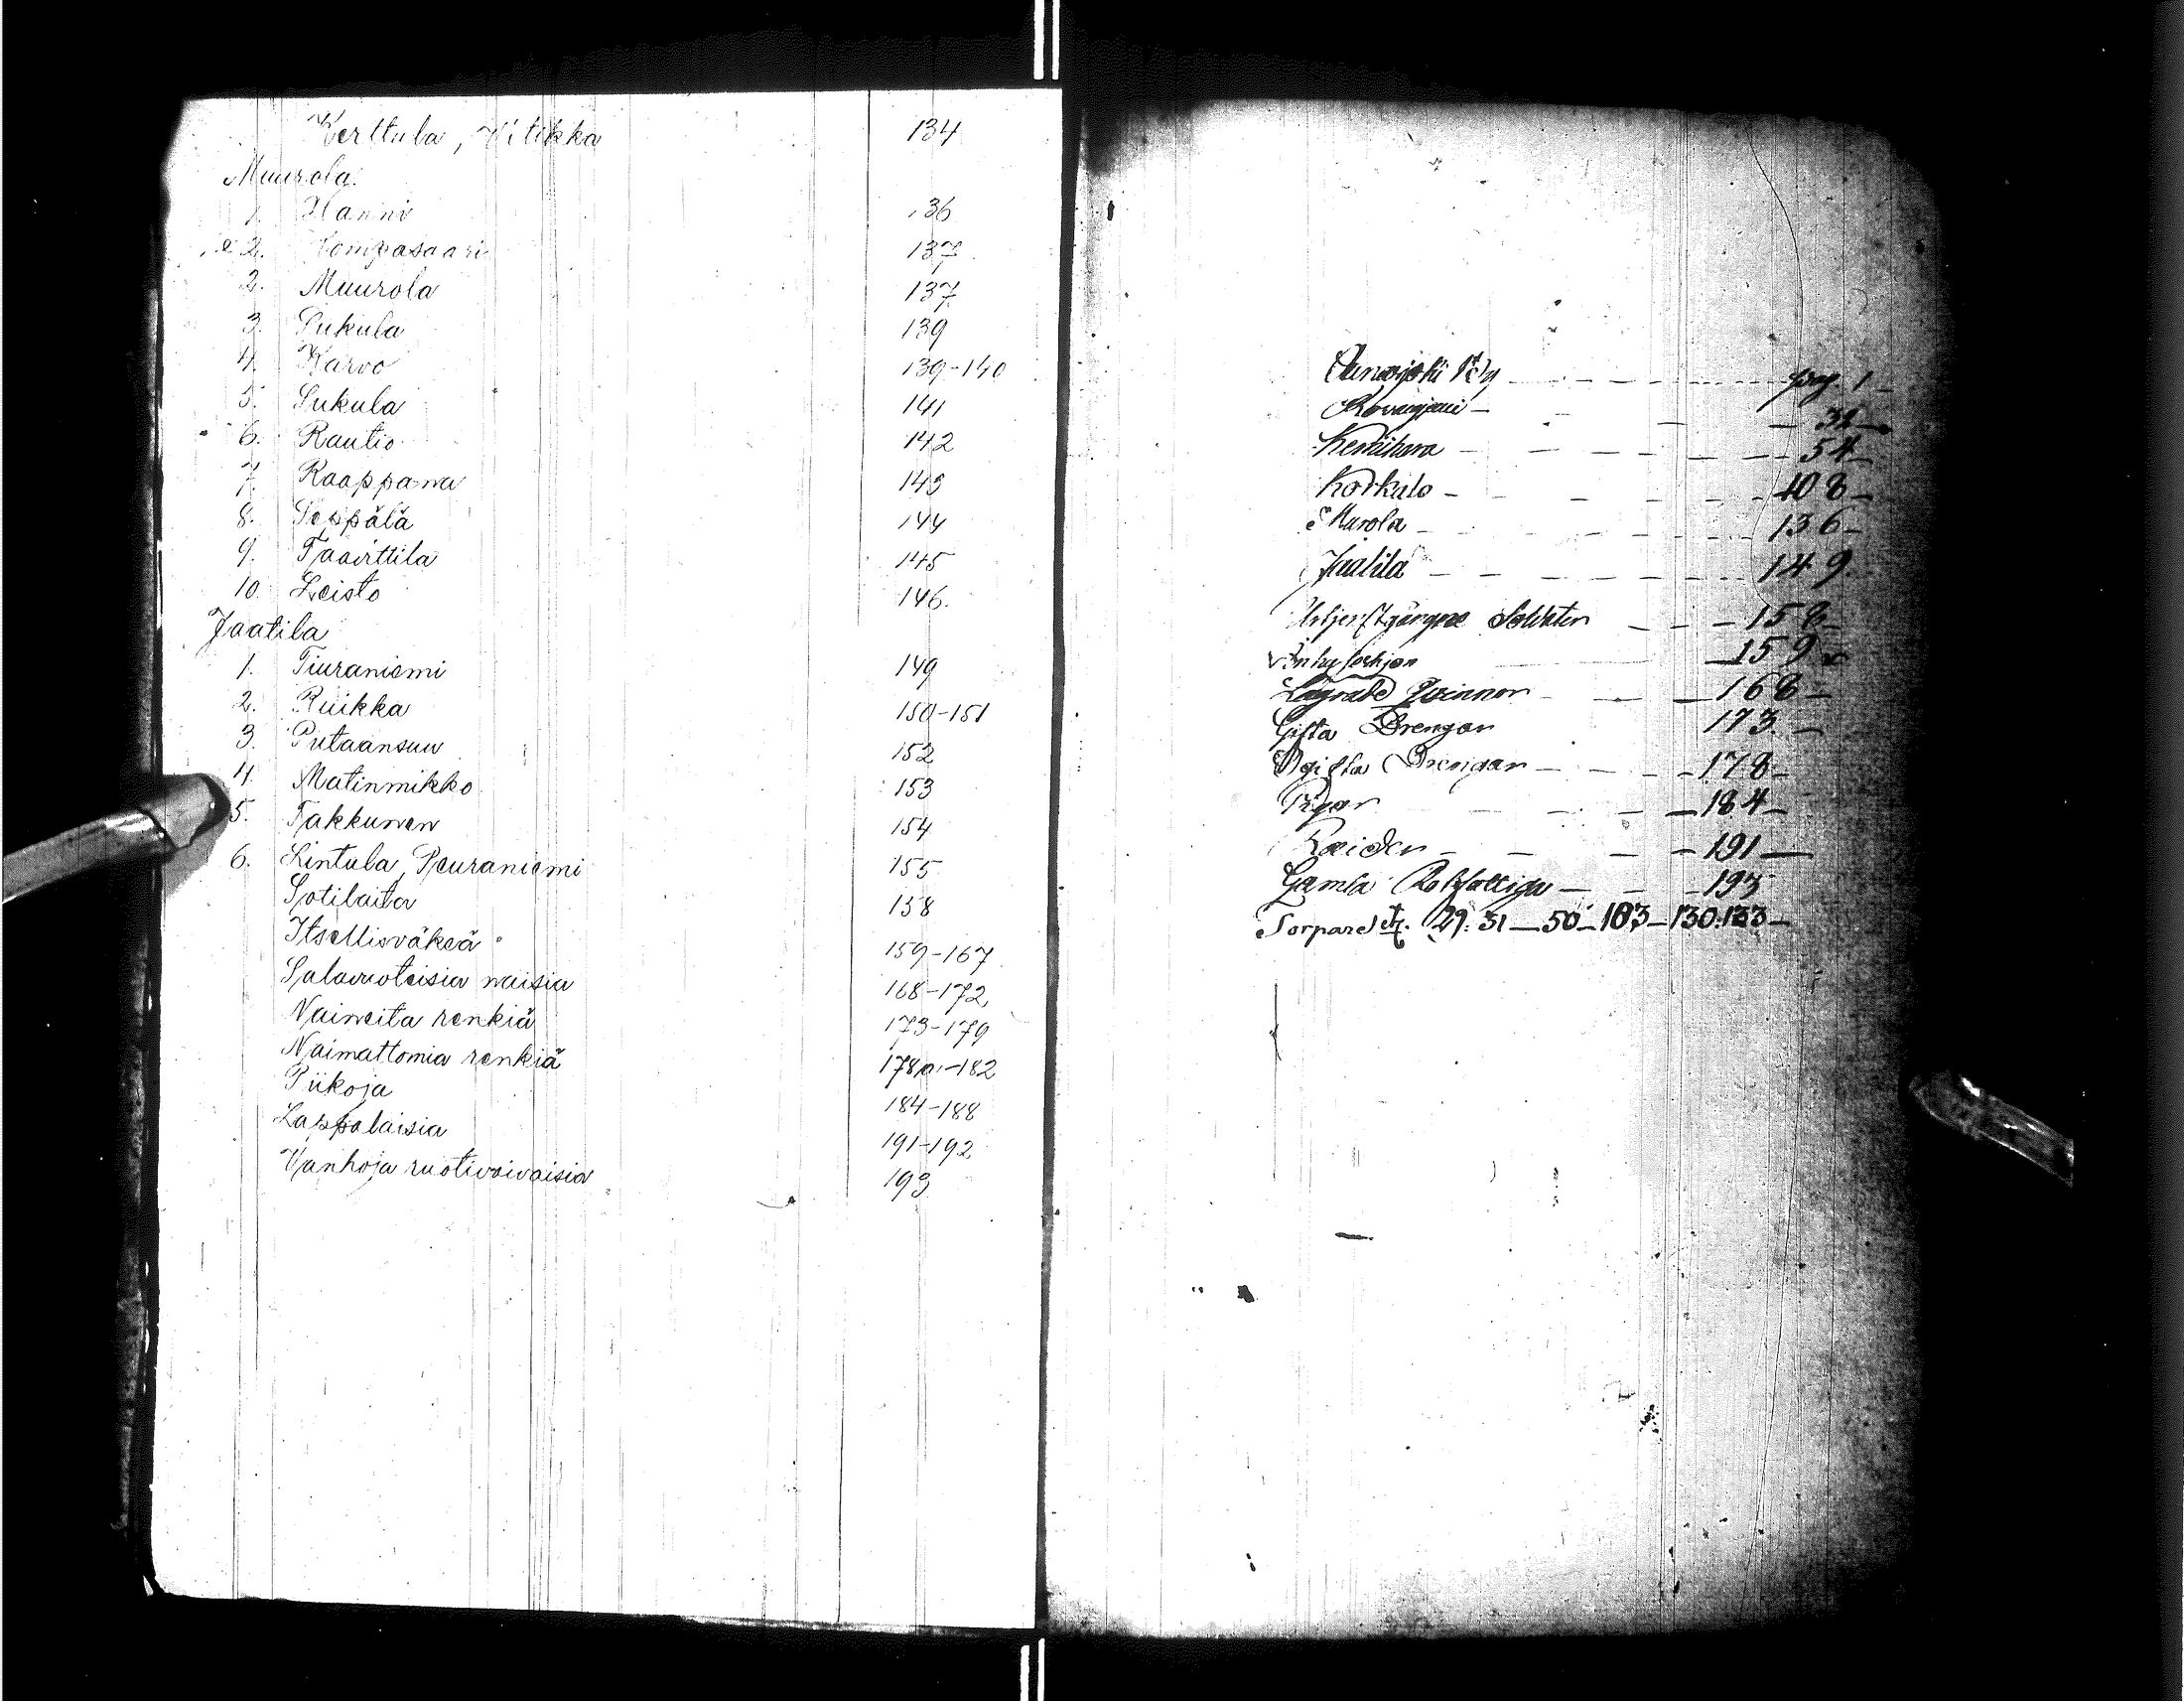 Kerttula, Vitikka 134
Muurola.
1. Hanni 136
2. Kompasaari 137
2. Muurola 137
3. Sukula 139
4. Karvo 139-140
5. Sukula 141
6. Rautio 142
7. Kaappana 143
8. Seppälä 144
9. Taavittila 145
10. Leisto 146.
Jaatila
1. Tiuraniemi 149
2. Ruikka 150-151
3. Putaansuu 152
4. Matinmikko 153
5. Takkunen 154
6. Lintula, Peuraniemi 155
Sotilaita 158
Itsellisväkeä 159-167
Salavuoteisia naisia 168-172
Naineita renkiä 173-179
Naimattomia renkiä 178a-182
Piikoja 184-188
Lappalaisia 191-192
Vanhoja ruotivaivaisia 193
pag. 1
Rovanjemi 32
Kemihara 54
Korkalo 108
Murola 136
Jaatila 149
Soldater 158
Inhysehjon 159
Lägrade Qvinnor 168
Gifta Drengar 173
Ogifta Drengar 178
Pigor 184
191
Gamla Rotfattiga 193
Torpare 29. 31 50 103 130. 133